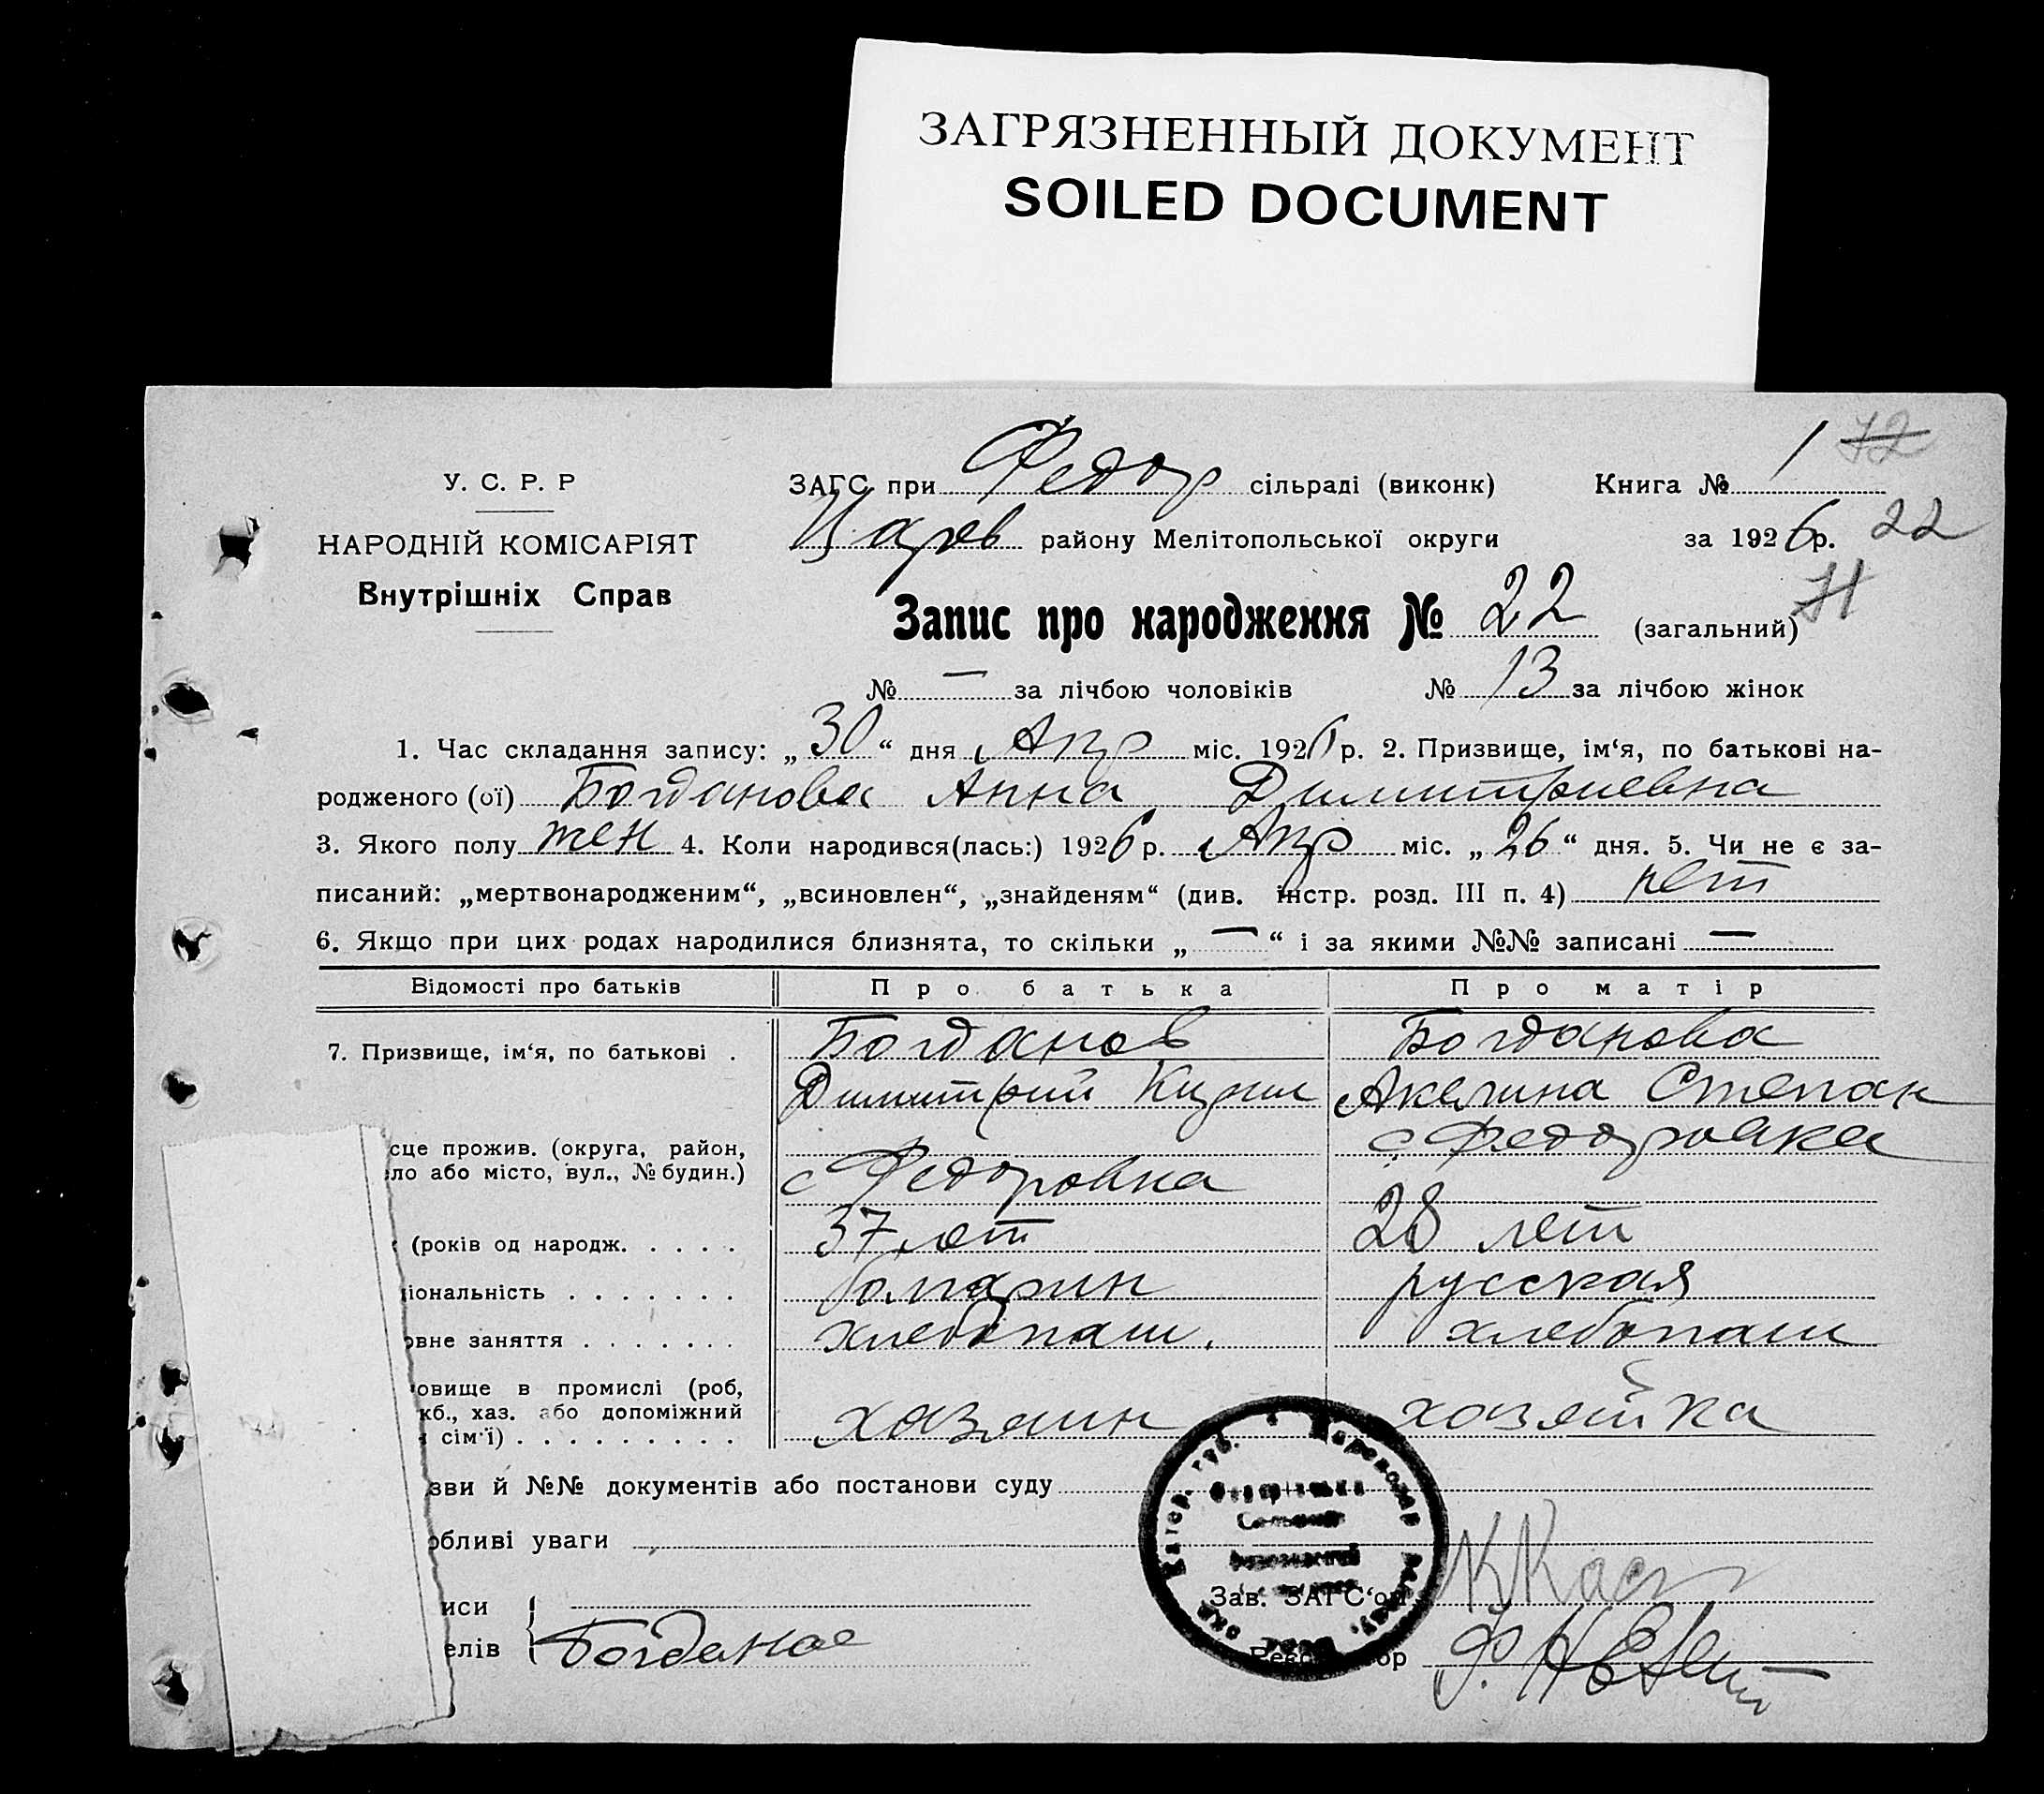 ЗАГРЯЗНЕННЫЙ ДОКУМЕНТ
SOILED DOCUMENT
У. С. Р. Р
НАРОДНІЙ КОМІСАРІЯТ
Внутрішніх Справ
ЗАГС при Федор сільраді (виконк) Книга № 1 72
Царев району Мелітопольської округи за 1926 р. 22
Запис про народження № 22 (загальний) 71
№ — за лічбою чоловіків № 13 за лічбою жінок
1. Час складання запису: „30“ дня Апр міс. 1926 р. 2. Призвище, ім‘я, по батькові на-
родженого (ої) Богданова Анна Димитриевна
3. Якого полу жен 4. Коли народився(лась:) 1926 р. Апр міс. „26“ дня. 5. Чи не є за-
писаний: „мертвонародженим“, „всиновлен“, „знайденям“ (див. інстр. розд. III п. 4) нет
6. Якщо при цих родах народилися близнята, то скільки „—“ і за якими №№ записані —
Відомості про батьків Про батька Про матір
7. Призвище, ім‘я, по батькові . Богданов Богданова
Димитрий Кирил Акелина Степан
сце прожив. (округа, район, с Федоровка
ло або місто, вул., № будин.) с Федоровка
(років од народж. . . . . 37 лет 28 лет
іональність . . . . . . . болгарин русская
овне заняття . . . . . . . хлебопаш. хлебопаш
овище в промислі (роб,
кб., хаз. або допоміжний хазяин хозяйка
сім‘ї) . . . . . . . . .
зви й №№ документів або постанови суду
обливі уваги
Зав. ЗАГС‘ом
иси
елів Богданов